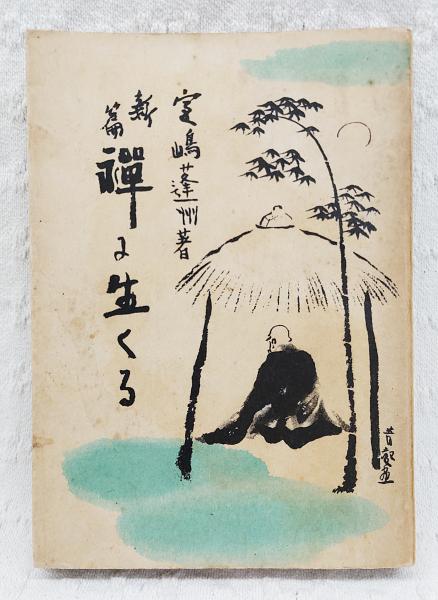 宮嶋蓬州著
新篇
禪に生くる